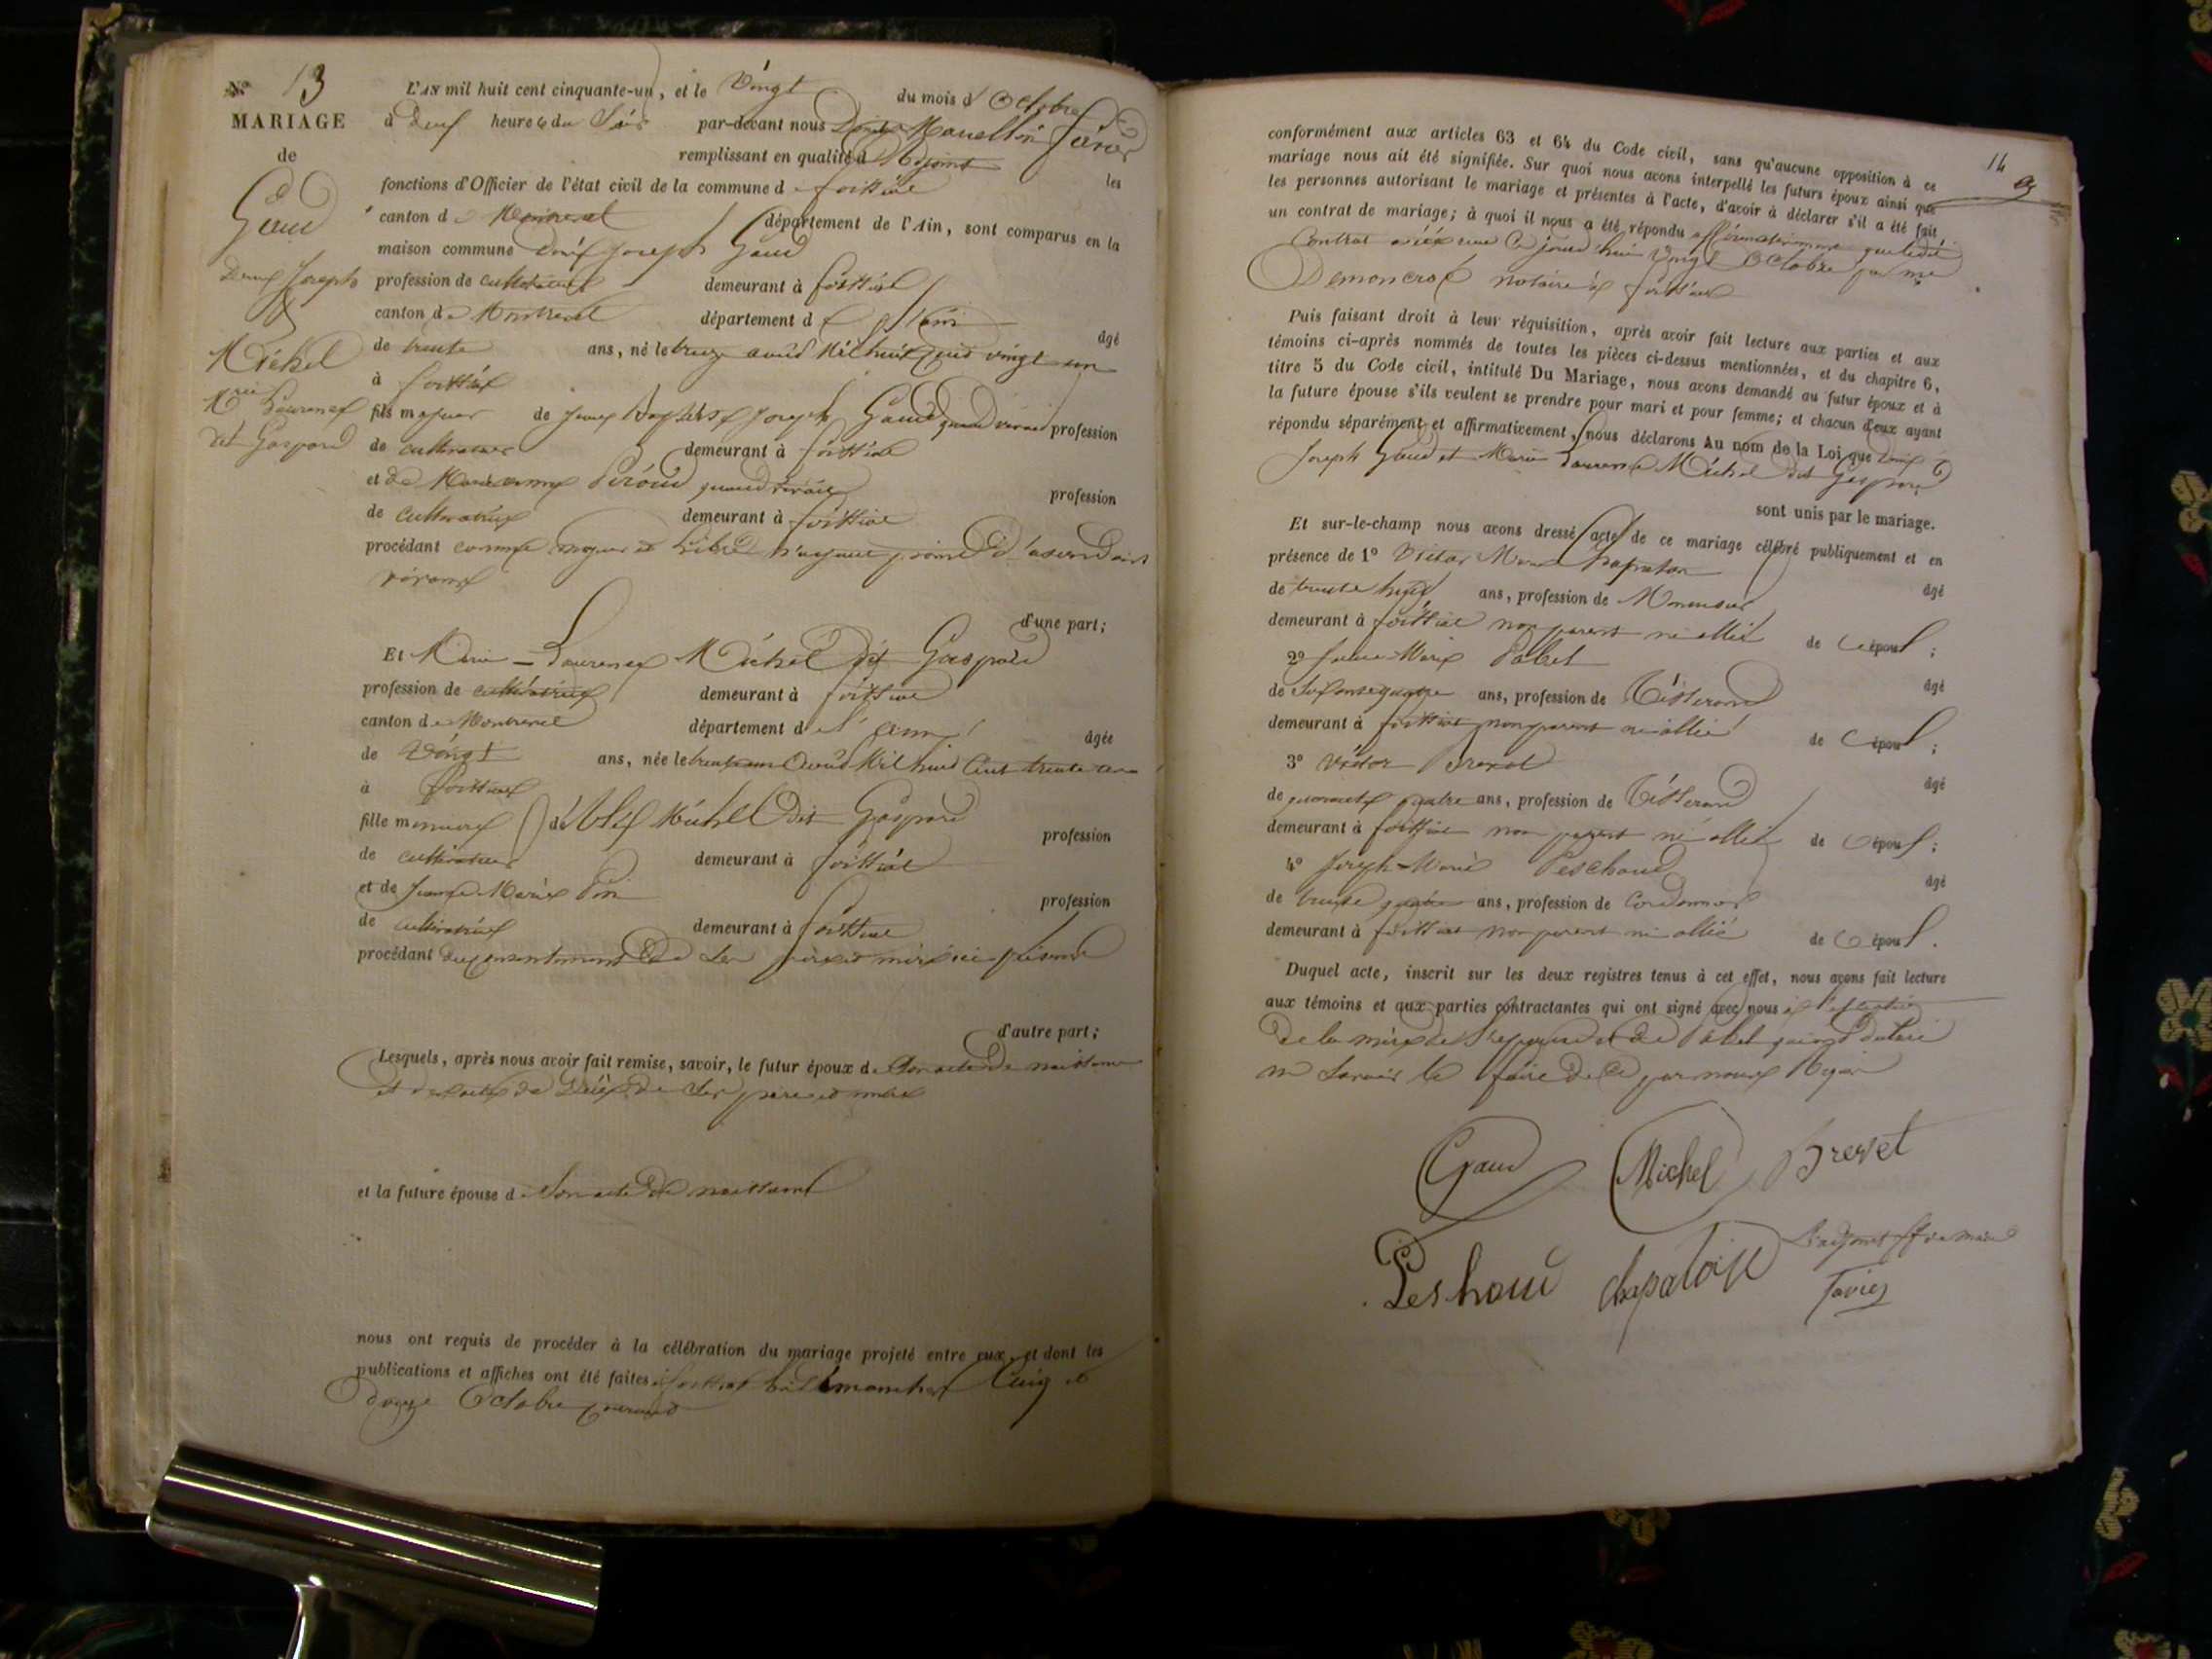 N° 13
MARIAGE
de
Gaud
Denis Joseph
&
Michel
Mie Laurence
dit Gaspard
L'AN mil huit cent cinquante-un, et le Vingt du mois d'Octobre
à Deux heures du Soir par-devant nous Marcellin
remplissant en qualité d'Adjoint les
fonctions d'Officier de l'état civil de la commune de foissiat
canton de Montrevel département de l'Ain, sont comparus en la
maison commune Denis Joseph Gaud
profession de cultivateur demeurant à foissiat
canton de Montrevel département de l'Ain âgé
de trente ans, né le treize avril Mil huit cent vingt un
à foissiat
fils majeur de Joseph Gaud quand vivait profession
de cultivateur demeurant à foissiat
et de Marie anne quand vivait profession
de cultivatrice demeurant à foissiat
procédant comme majeur et libre n'ayant point d'ascendant
vivant
d'une part;
Et Marie-Laurence Michel dit Gaspard
profession de cultivatrice demeurant à foissiat
canton de Montrevel département de l'ain âgée
de Vingt ans, née le Mil huit Cent trente un
à foissiat
fille mineure de Michel dit Gaspard profession
de cultivateur demeurant à foissiat
et de Jeanne Marie profession
de cultivatrice demeurant à foissiat
procédant du consentement de ses père et mère ici présents
d'autre part;
Lesquels, après nous avoir fait remise, savoir, le futur époux de son acte de naissance
et de l'acte de décès de ses père et mère
et la future épouse de son acte de naissance
nous ont requis de procéder à la célébration du mariage projeté entre eux, et dont les
publications et affiches ont été faites à foissiat les dimanches Cinq et
douze Octobre courant
14
conformément aux articles 63 et 64 du Code civil, sans qu'aucune opposition à ce
mariage nous ait été signifiée. Sur quoi nous avons interpellé les futurs époux ainsi que
les personnes autorisant le mariage et présentes à l'acte, d'avoir à déclarer s'il a été fait
un contrat de mariage; à quoi il nous a été répondu affirmativement que ledit
Contrat a été reçu Ce jourd'hui vingt Octobre par me
notaire à foissiat
Puis faisant droit à leur réquisition, après avoir fait lecture aux parties et aux
témoins ci-après nommés de toutes les pièces ci-dessus mentionnées, et du chapitre 6,
titre 5 du Code civil, intitulé Du Mariage, nous avons demandé au futur époux et à
la future épouse s'ils veulent se prendre pour mari et pour femme; et chacun d'eux ayant
répondu séparément et affirmativement, nous déclarons Au nom de la Loi que Denis
Joseph Gaud et Marie Laurence Michel dit Gaspard
sont unis par le mariage.
Et sur-le-champ nous avons dressé acte de ce mariage célébré publiquement et en
présence de 1° Victor Marie âgé
de trente ans, profession de
demeurant à foissiat non parent ni allié des époux;
2° Marie Pobel âgé
de ans, profession de Tisserand
demeurant à foissiat non parent ni allié des époux;
3° Victor Brevet âgé
de quarante quatre ans, profession de Tisserand
demeurant à foissiat non parent ni allié des époux;
4° Joseph-Marie Peschoud âgé
de trente quatre ans, profession de Cordonnier
demeurant à foissiat non parent ni allié des époux.
Duquel acte, inscrit sur les deux registres tenus à cet effet, nous avons fait lecture
aux témoins et aux parties contractantes qui ont signé avec nous à l'exception
de la mère de l'épouse et de Pobel qui ont déclaré
ne savoir le faire de ce par nous Requis
Gaud Michel Brevet
Peshoud